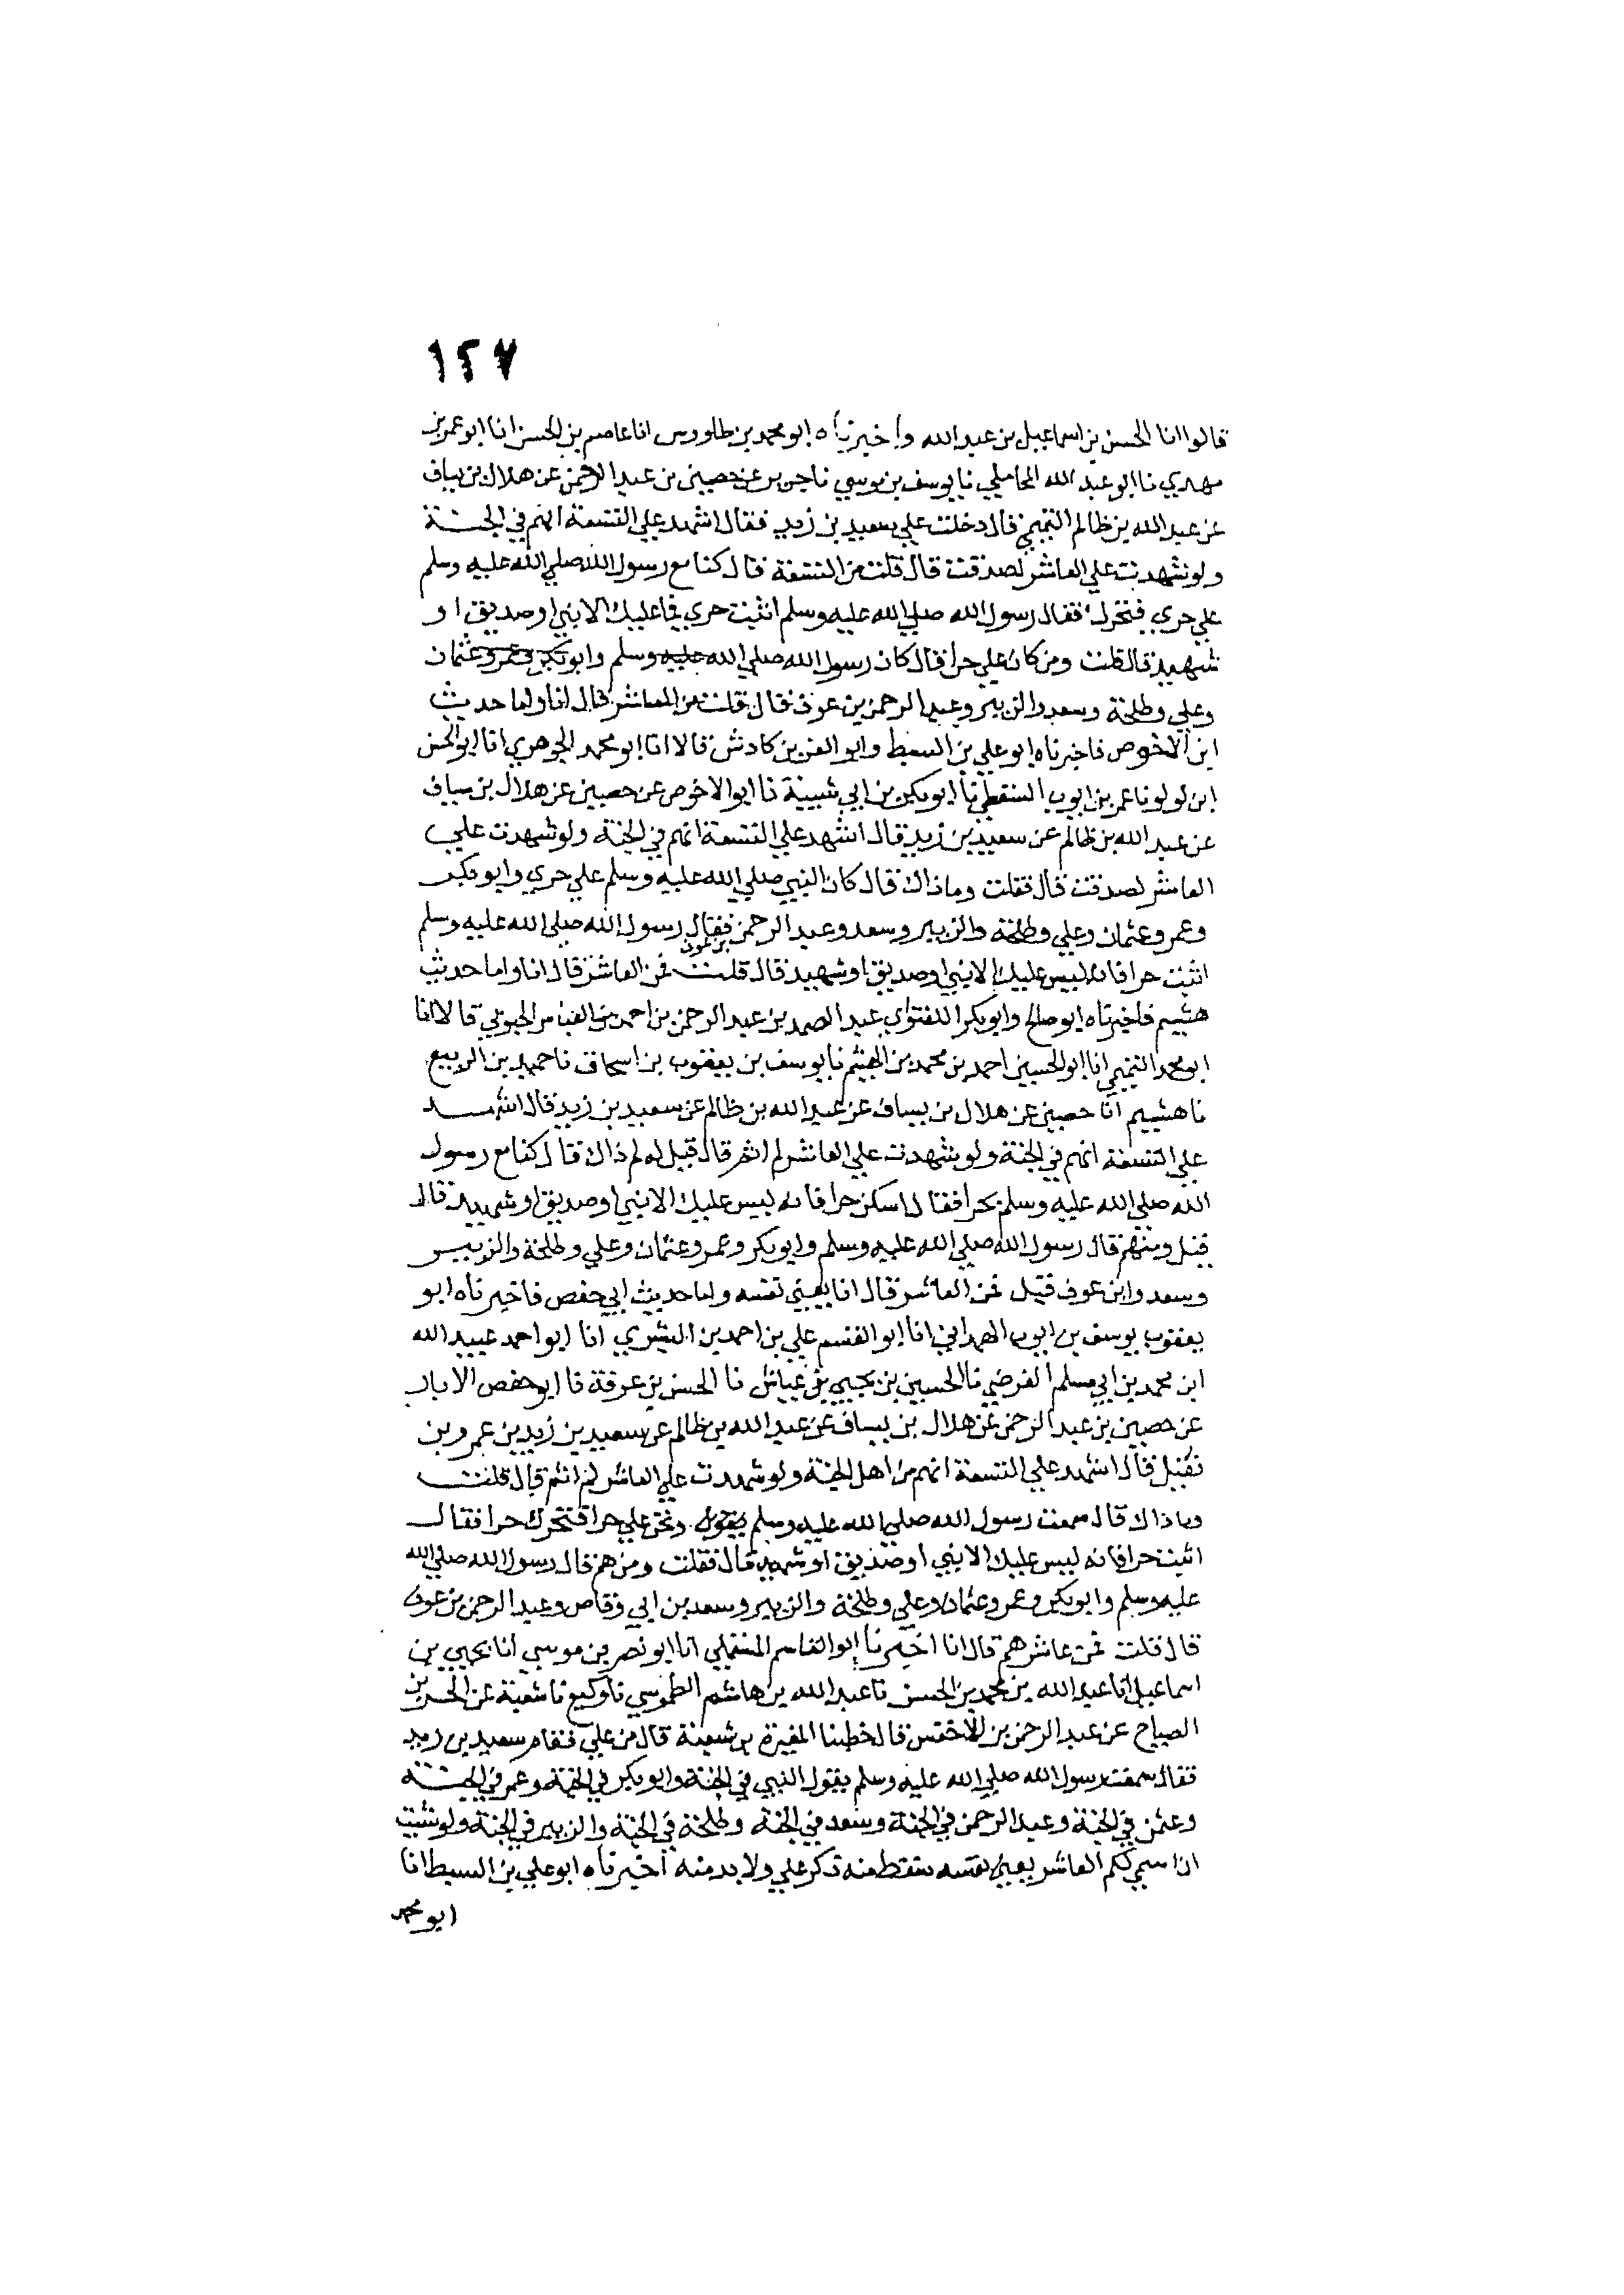 ١٢٧
قالوا انا الحسن بن اسماعيل بن عبد الله واخبرناه ابو محمد بن طاوس انا عاصم بن الحسن انا ابو عمر بن
مهدي نا ابو عبد الله المحاملي نا يوسف بن موسي نا جرير عن حصين بن عبد الرحمن عن هلال بن يساف
عن عبد الله بن ظالم التميمي قال دخلت علي سعيد بن زيد فقال اشهد علي التسعة انهم في الجنة
ولو شهدت علي العاشر لصدقت قال قلت من التسعة قال كنا مع رسول الله صلي الله عليه وسلم
علي حري فتحرك فقال رسول الله صلي الله عليه وسلم اثبت حري فما عليك الا نبي او صديق او
شهيد قال قلت ومن كان علي حرا قال كان رسول الله صلي الله عليه وسلم وابو بكر وعمر وعثمان
وعلي وطلحة وسعد والزبير وعبد الرحمن بن عوف قال قلت من العاشر قال انا واما حديث
ابن الاخوص فاخبرناه ابو علي بن السبط وابو العز بن كادش قالا انا ابو محمد الجوهري انا ابو الحسن
ابن لولو نا عمر بن ايوب السقطي نا ابو بكر بن ابي شيبة نا ابو الاخوص عن حصين عن هلال بن يساف
عن عبد الله بن ظالم عن سعيد بن زيد قال اشهد علي التسعة انهم في الجنة ولو شهدت علي
العاشر لصدقت قال فقلت وما ذاك قال كان النبي صلي الله عليه وسلم علي حري وابو بكر
وعمر وعثمان وعلي وطلحة والزبير وسعد وعبد الرحمن بن عوف فقال رسول الله صلي الله عليه وسلم
اثبت حرا فانه ليس عليك الا نبي او صديق او شهيد قال قلت فمن العاشر قال انا واما حديث
هشيم فاخبرناه ابو صالح وابو بكر اللفتواي عبد الصمد بن عبد الرحمن بن احمد بن العباس الحنوي قالا انا
ابو محمد التميمي انا ابو الحسين احمد بن محمد بن الهيثم نا يوسف بن يعقوب بن اسحاق نا حميد بن الربيع
نا هشيم انا حصين عن هلال بن يساف عن عبد الله بن ظالم عن سعيد بن زيد قال اشهد
علي التسعة انهم في الجنة ولو شهدت علي العاشر لم اثم قال قيل له لم ذاك قال كنا مع رسول
الله صلي الله عليه وسلم بحرا فقال اسكن حرا فانه ليس عليك الا نبي او صديق او شهيد قال
قيل ومنهم قال رسول الله صلي الله عليه وسلم وابو بكر وعمر وعثمان وعلي وطلحة والزبير
وسعد وابن عوف قيل فمن العاشر قال انا يعني نفسه واما حديث ابي حفص فاخبرناه ابو
يعقوب يوسف بن ايوب الهمداني انا ابو القسم علي بن احمد بن البسري انا ابو احمد عبيد الله
ابن محمد بن ابي مسلم الفرضي نا الحسين بن يحيي بن عياش نا الحسن بن عرفة نا ابو حفص الابار
عن حصين بن عبد الرحمن عن هلال بن يساف عن عبد الله بن ظالم عن سعيد بن زيد بن عمرو بن
نفيل قال اشهد علي التسعة انهم من اهل الجنة ولو شهدت علي العاشر لم اثم قال قلت
وما ذاك قال سمعت رسول الله صلي الله عليه وسلم يقول ونحن علي حرا فتحرك حرا فقال
اثبت حرا فانه ليس عليك الا نبي او صديق او شهيد قال فقلت ومن هم قال رسول الله صلي الله
عليه وسلم وابو بكر وعمر وعثمان وعلي وطلحة والزبير وسعد بن ابي وقاص وعبد الرحمن بن عوف
قال قلت فمن عاشرهم قال انا اخبرنا ابو القاسم المستملي انا ابو نصر بن موسي انا يحيي بن
اسماعيل انا عبد الله بن محمد بن الحسن نا عبد الله بن هاشم الطوسي نا وكيع نا شعبة عن الحر بن
الصياح عن عبد الرحمن بن الاخنس قال خطبنا المغيرة بن شعبة قال من علي فقام سعيد بن زيد
فقال سمعت رسول الله صلي الله عليه وسلم يقول النبي في الجنة وابو بكر في الجنة وعمر في الجنة
وعثمن في الجنة وعبد الرحمن في الجنة وسعد في الجنة وطلحة في الجنة والزبير في الجنة ولو شئت
ان اسمي لكم العاشر يعني نفسه سقط منه ذكر علي ولا بد منه اخبرناه ابو علي بن السبط انا
ابو محمد